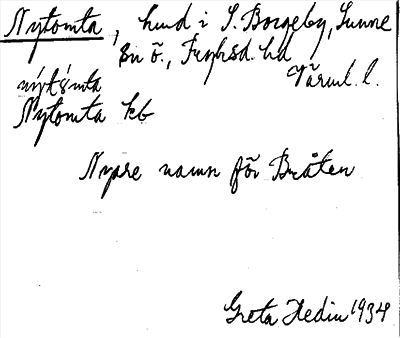 Nytomta, hmd i S. Borgeby, Sunne
sn ö., Fryksd. hd
Värml. l.
nýtómta
Nytomta kb
Nyare namn för Bråten
Greta Hedin 1934